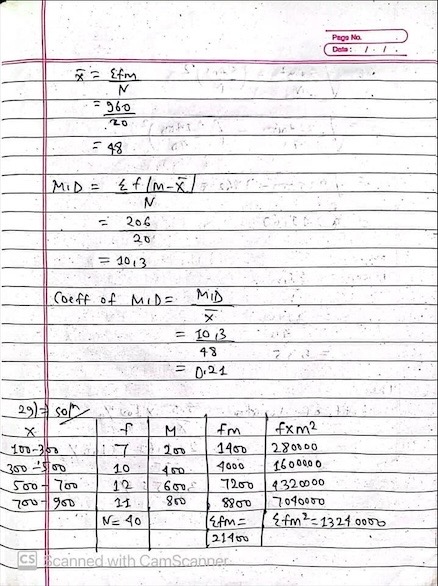 Page No.
Date: / /
x̄ = Σfm
N
= 960
20
= 48
M.D = Σf|m-x̄|
N
= 206
20
= 10.3
Coeff of M.D = M.D
x̄
= 10.3
48
= 0.21
29)= solⁿ
X f M fm fxm²
100-300 7 200 1400 280000
300-500 10 400 4000 1600000
500-700 12 600 7200 4320000
700-900 11 800 8800 7040000
N= 40 Σfm= Σfm²=13240000
21400
CS Scanned with CamScanner